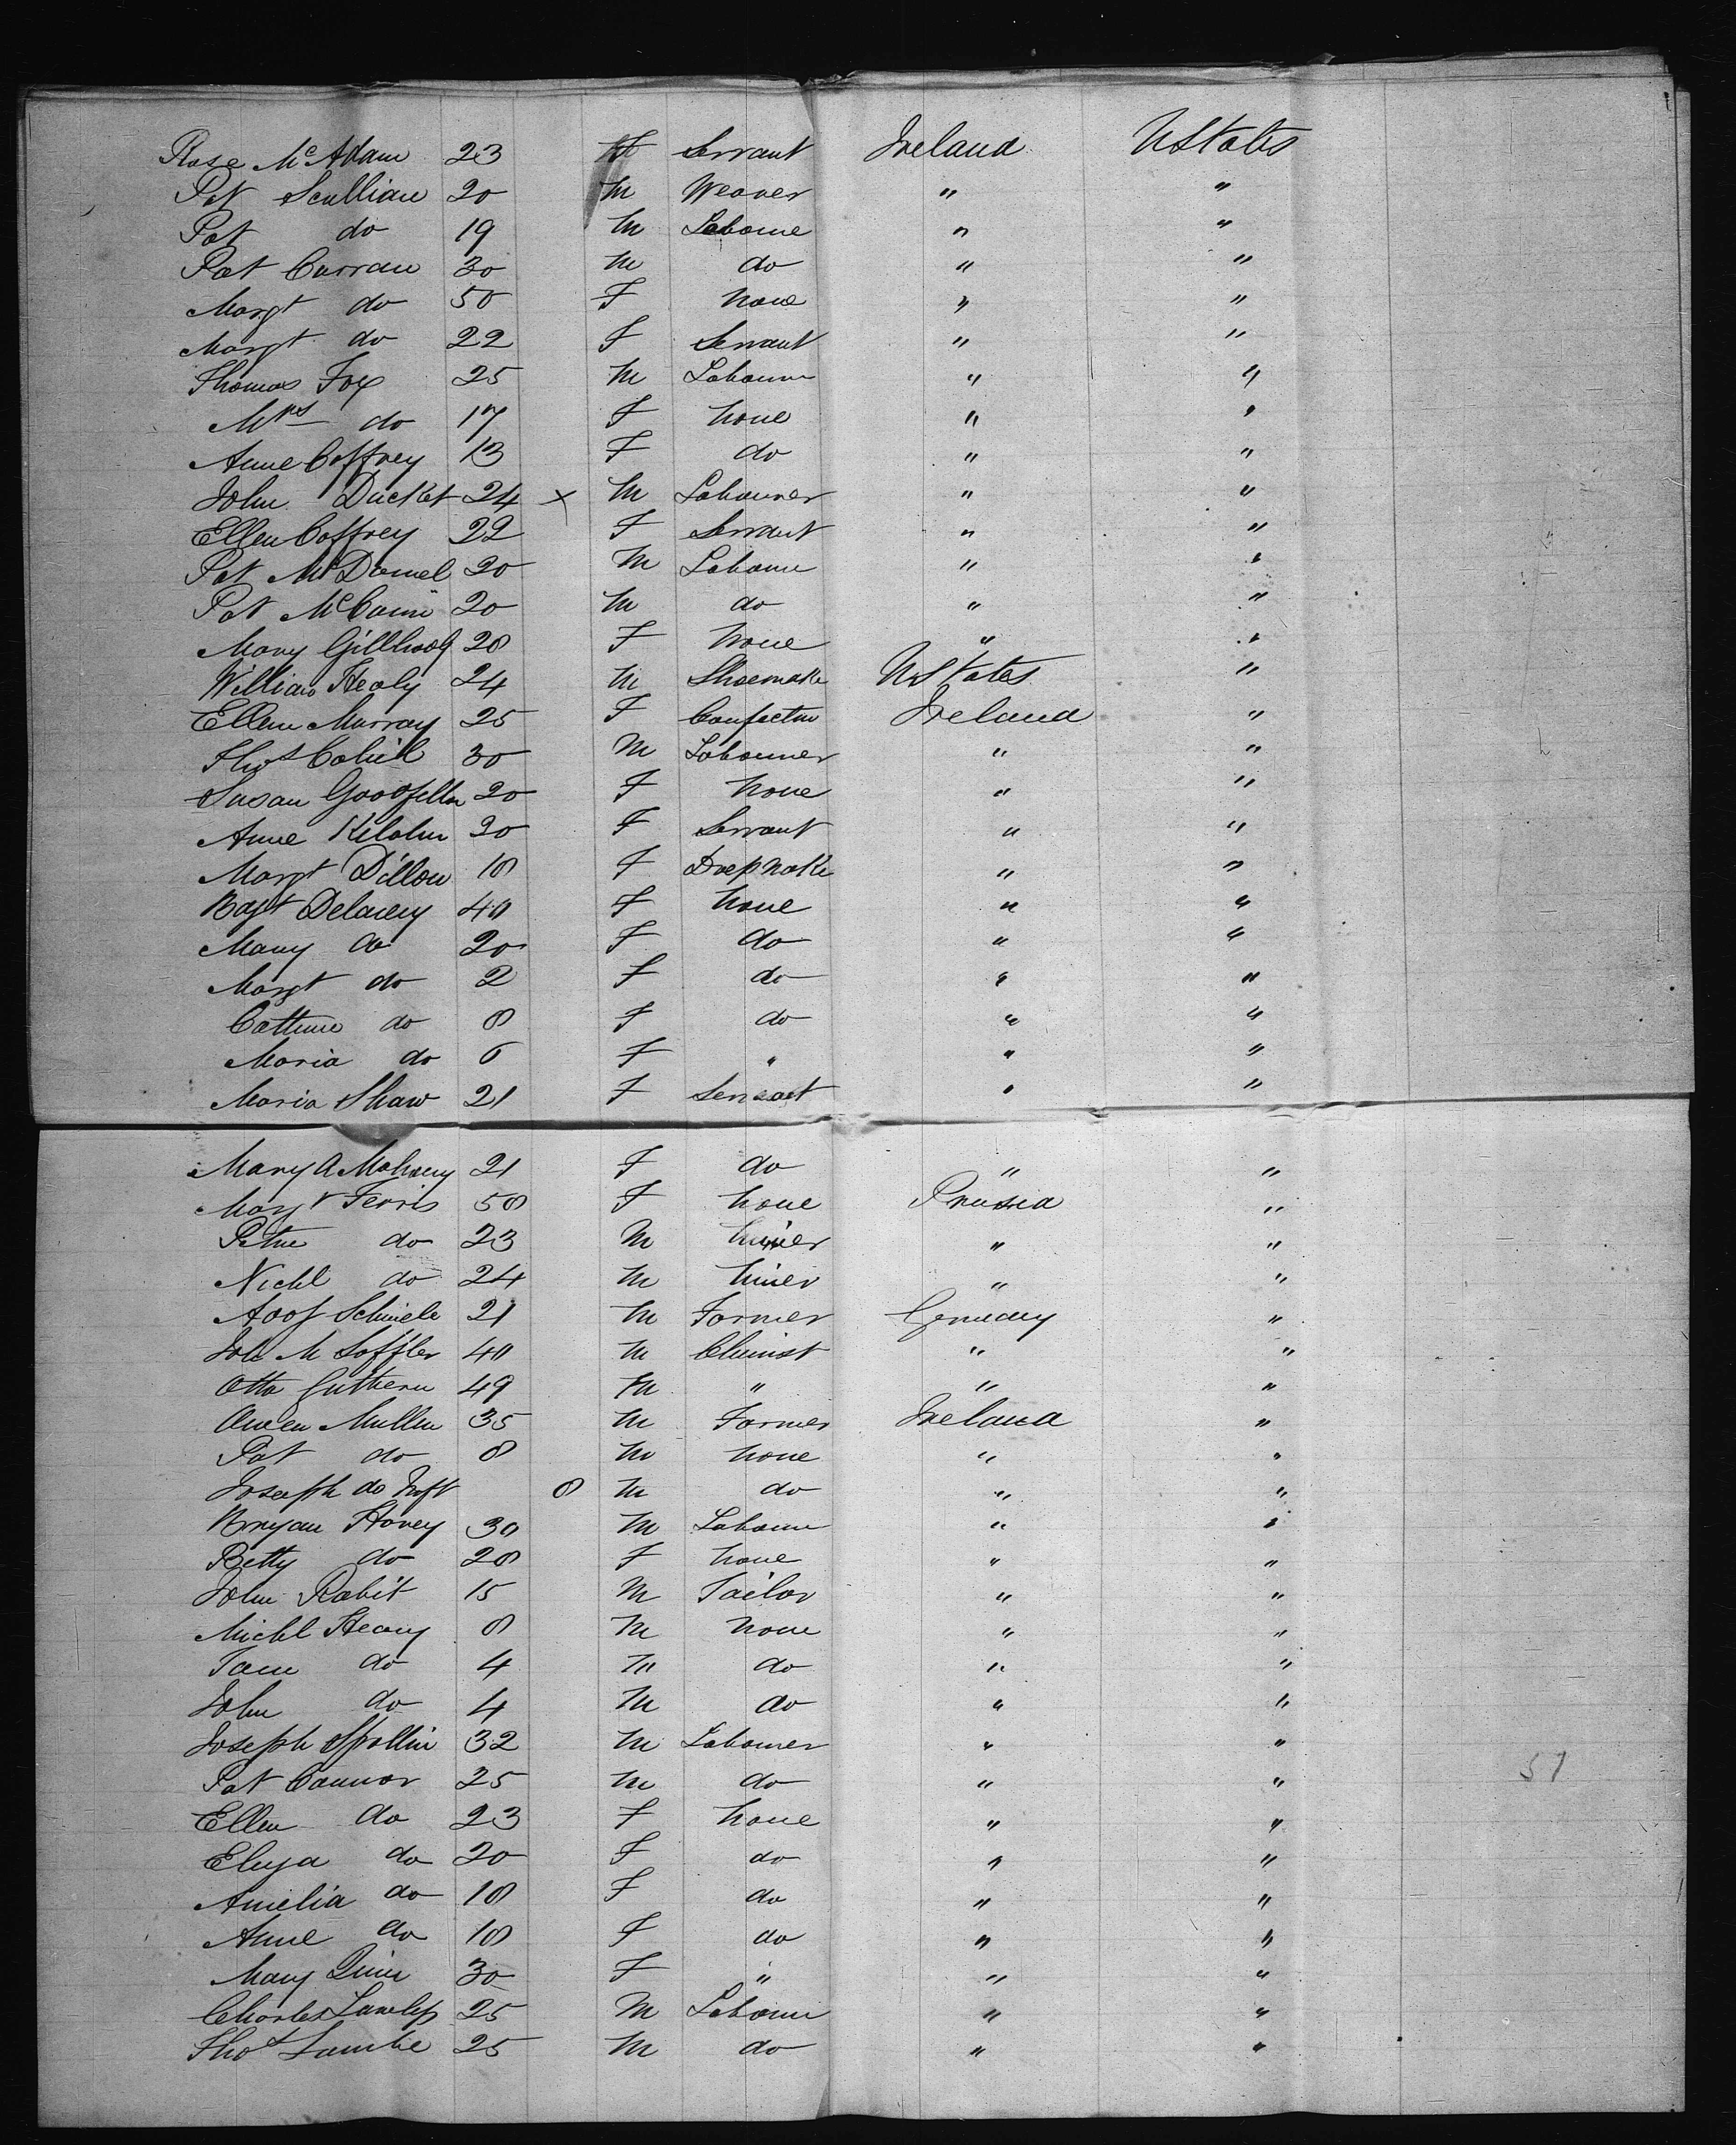 Rose McAdam 23 F Servant Ireland UStates
Pat Scullian 20 M Weaver " "
Pat do 19 M Laboure " "
Pat Curran 30 M do " "
Margt do 50 F none " "
Margt do 22 F Servant " "
Thomas Fox 25 M Labourer " "
Mrs do 17 F none " "
Anne Caffrey 13 F do " "
John Ducket 24 x M Labourer " "
Ellen Caffrey 22 F Servant " "
Pat McDaniel 20 M Laboure " "
Pat McCann 20 M do " "
Mary Gillhooly 28 F none " "
William Healy 24 M Shoemake UStates "
Ellen Murray 25 F Confectin Ireland "
Thos Cahill 30 M Labourer " "
Susan Goodfellow 20 F none " "
Anne 20 F Servant " "
Margt Dillon 18 F Dressmake " "
Bagt Delaney 40 F none " "
Mary do 20 F do " "
Margt do 2 F do " "
Catherine do 8 F do " "
Maria do 6 F " " "
Maria Shaw 21 F Servant " "
Mary A Mahony 21 F do " "
Margt Ferris 50 F none Prussia "
Peter do 23 M miner " "
Nichl do 24 M miner " "
Adof Schiele 21 M Farmer Germany "
Joh M Loffler 40 M Chemist " "
Otto 49 M " " "
Owen Mullen 35 M Farmer Ireland "
Pat do 8 M none " "
Joseph do Inft 8 M do " "
Bryan Hovey 30 M Laboure " "
Betty do 28 F none " "
John Rabit 15 M Tailor " "
Michl Heany 8 M none " "
Jam do 4 M do " "
John do 4 M do " "
Joseph Spollin 32 M Labourer " "
Pat Connor 25 M do " "
Ellen do 23 F none " "
Eliza do 20 F do " "
Amelia do 18 F do " "
Anne do 18 F do " "
Mary Quin 30 F " " "
Charles 25 M Laboure " "
Thos Lambe 25 M do " "
51